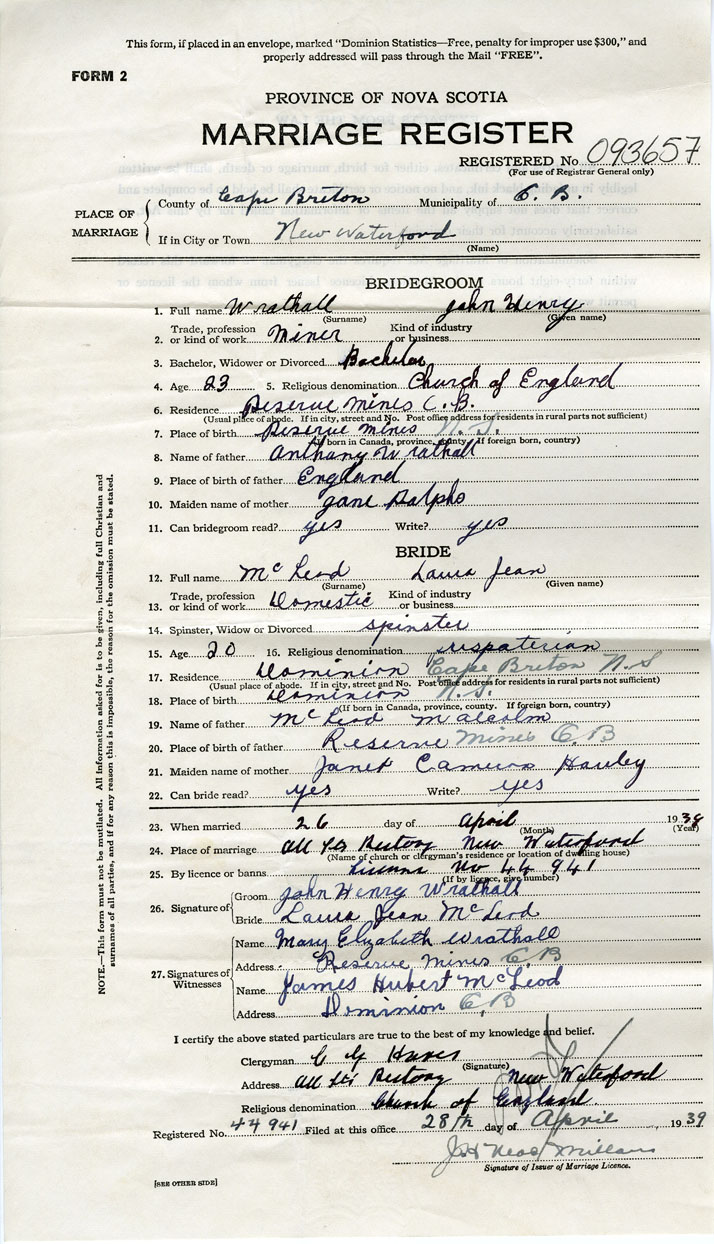 This form, if placed in an envelope, marked "Dominion Statistics—Free, penalty for improper use $300," and
properly addressed will pass through the Mail "FREE".
FORM 2
PROVINCE OF NOVA SCOTIA
MARRIAGE REGISTER
REGISTERED No 093657
(For use of Registrar General only)
PLACE OF MARRIAGE
County of Cape Breton Municipality of C. B.
If in City or Town New Waterford
(Name)
BRIDEGROOM
1. Full name Wrathall John Henry
(Surname) (Given name)
2. Trade, profession or kind of work Miner Kind of industry or business
3. Bachelor, Widower or Divorced Bachelor
4. Age 23 5. Religious denomination Church of England
6. Residence Reserve Mines C.B.
(Usual place of abode. If in city, street and No. Post office address for residents in rural parts not sufficient)
7. Place of birth Reserve Mines N.S.
(If born in Canada, province, county. If foreign born, country)
8. Name of father Anthony Wrathall
9. Place of birth of father England
10. Maiden name of mother Jane Ralphs
11. Can bridegroom read? yes Write? yes
BRIDE
12. Full name McLeod Laura Jean
(Surname) (Given name)
13. Trade, profession or kind of work Domestic Kind of industry or business
14. Spinster, Widow or Divorced spinster
15. Age 20 16. Religious denomination
17. Residence Dominion Cape Breton N.S
(Usual place of abode. If in city, street and No. Post office address for residents in rural parts not sufficient)
18. Place of birth Dominion N.S.
(If born in Canada, province, county. If foreign born, country)
19. Name of father McLeod Malcolm
20. Place of birth of father Reserve Mines C.B
21. Maiden name of mother Janet
22. Can bride read? yes Write? yes
23. When married 26 day of April 1939
(Month) (Year)
24. Place of marriage All Sts Rectory New Waterford
(Name of church or clergyman's residence or location of dwelling house)
25. By licence or banns No 44941
(If by licence, give number)
26. Signature of
Groom John Henry Wrathall
Bride Laura Jean McLeod
27. Signatures of Witnesses
Name Mary Elizabeth Wrathall
Address Reserve Mines C.B
Name James Hubert McLeod
Address Dominion C,B
I certify the above stated particulars are true to the best of my knowledge and belief.
Clergyman
(Signature)
Address All Sts Rectory New Waterford
Religious denomination Church of England
Registered No. 44941 Filed at this office 28th day of April 1939
Signature of Issuer of Marriage Licence.
[SEE OTHER SIDE]
NOTE.—This form must not be mutilated. All information asked for is to be given, including full Christian and
surnames of all parties, and if for any reason this is impossible, the reason for the omission must be stated.